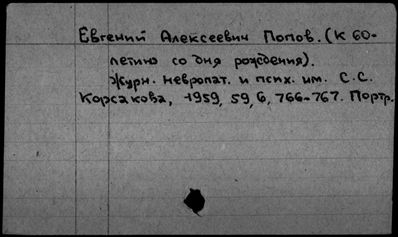 Евгений Алексеевич Попов. (К 60-
летию со дня рождения).
Журн. невропат. и псих. им. С.С.
Корсакова, 1959, 59, 6, 766-767. Портр.